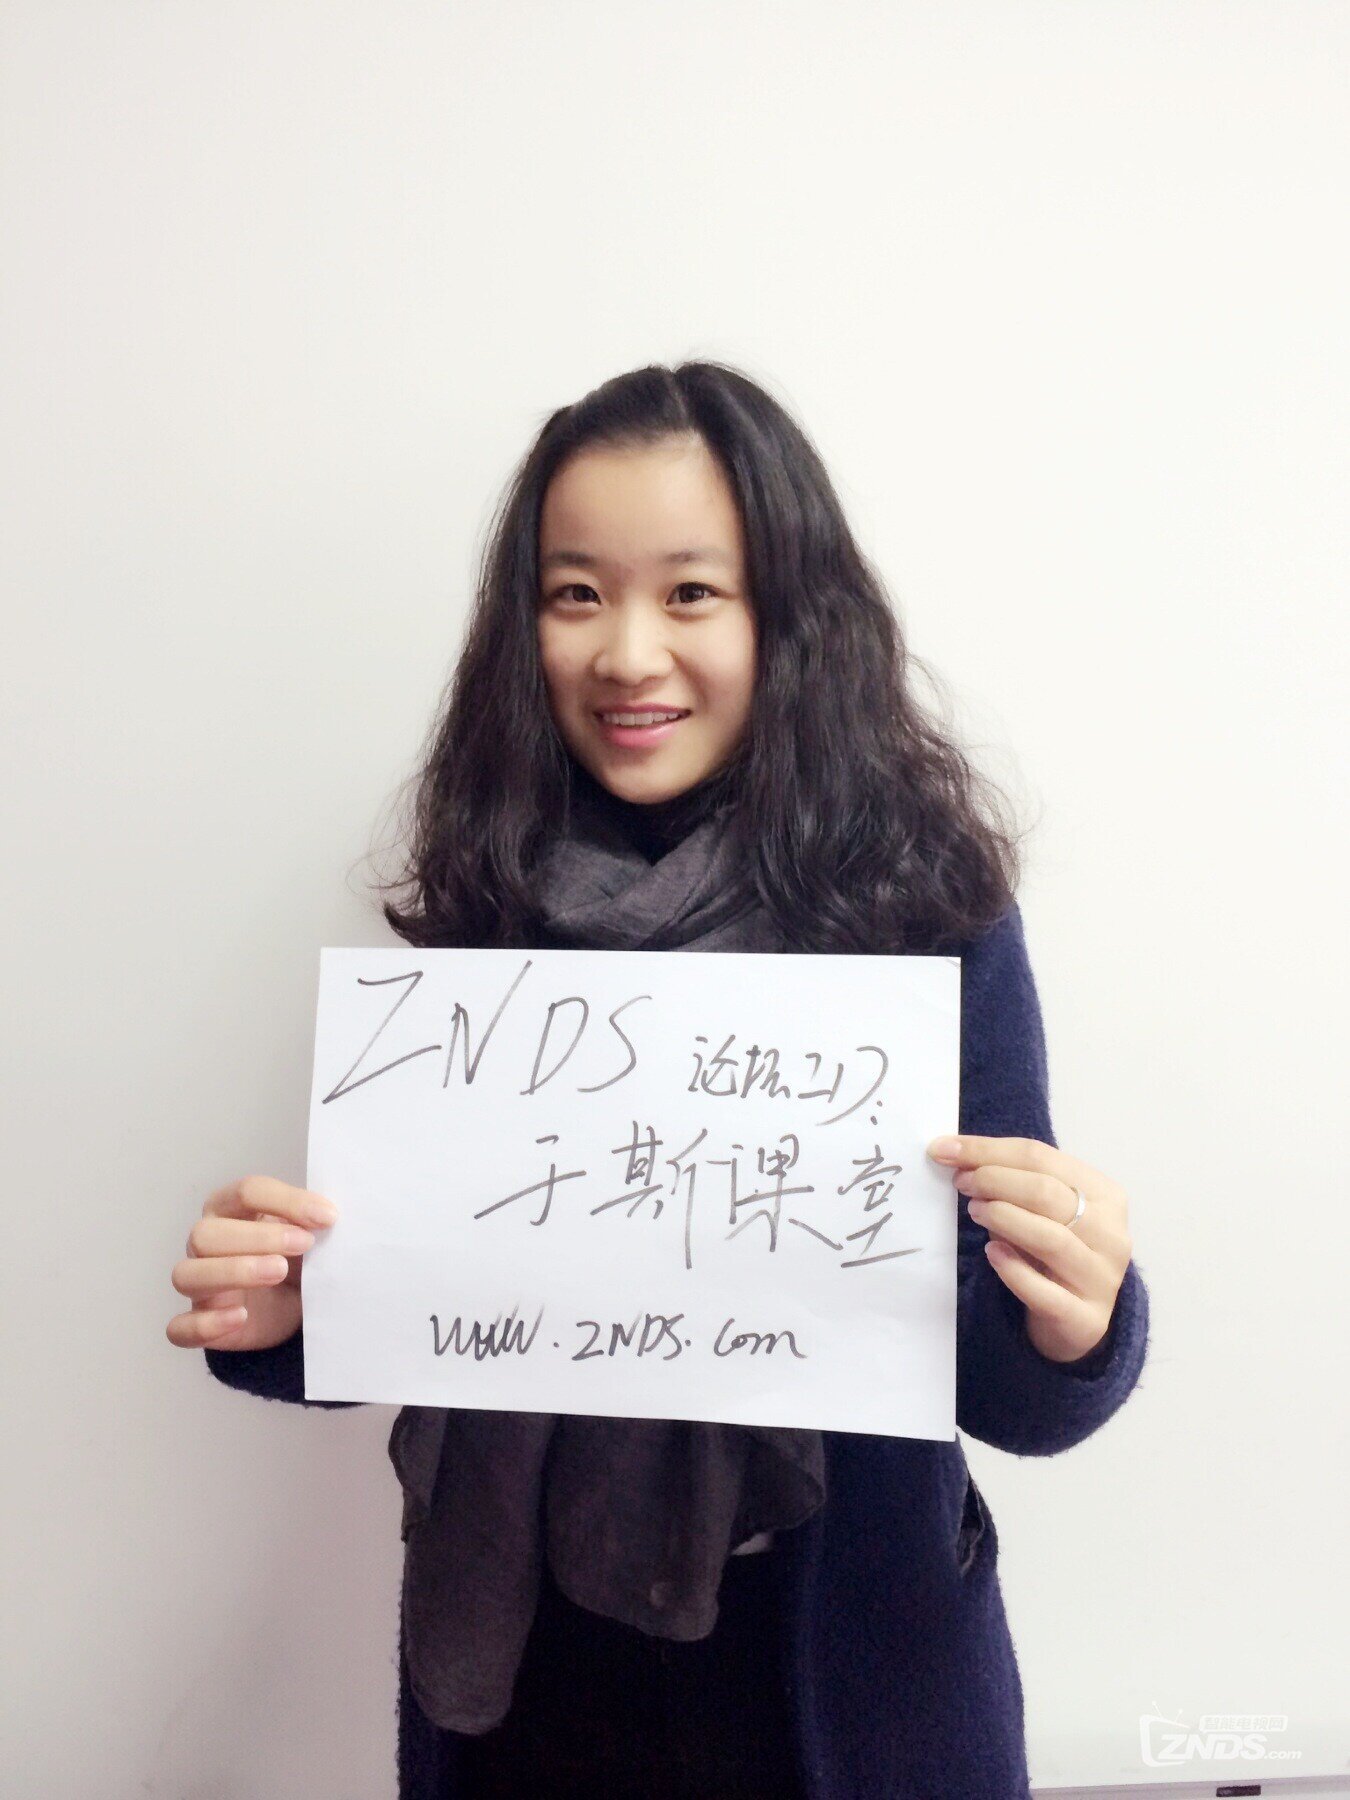 ZNDS 论坛ID:
于斯课堂
www.ZNDS.com
智能电视网
ZNDS.com